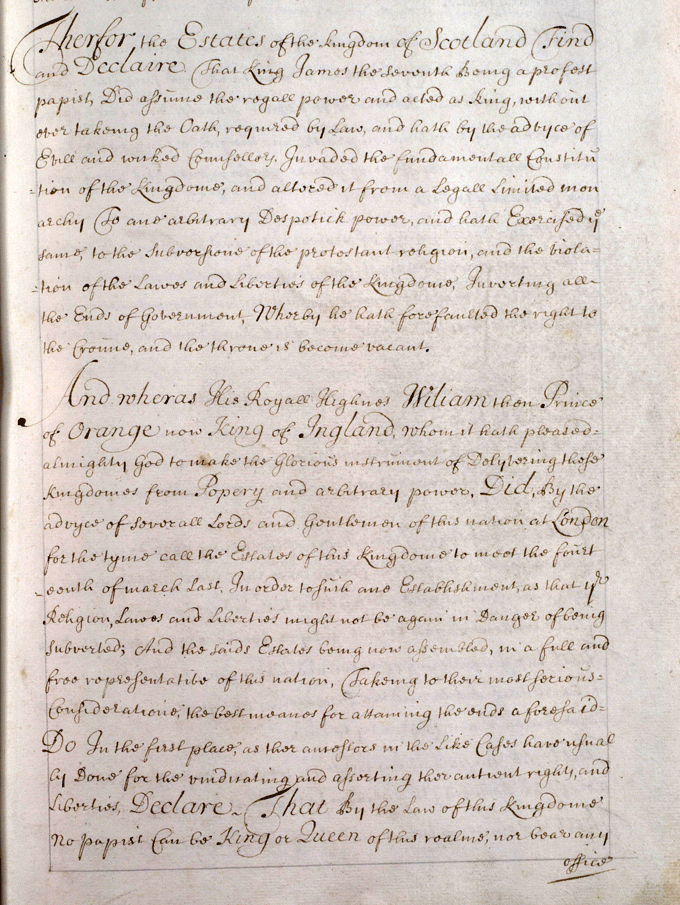 Therfor the Estates of the kingdom of Scotland Find
and Declaire That King James the seventh Being a profest
papist, Did assume the regall power and acted as King, without
ever takeing the Oath, required by Law, and hath by the advyce of
Evill and wicked Counsellers, Invaded the fundamentall Constitu
tion of the Kingdome, and altered it from a Legall Limited mon
archy To ane arbitrary Despotick power, and hath Exercised ye
same, to the Subversione of the protestant religion, and the viola-
tion of the Lawes and Liberties of the Kingdome, Inverting all
the Ends of Government, Wherby he hath forefaulted the right to
the Croune, and the throne is become vacant.
And wheras His Royall Highnes Wiliam then Prince
of Orange now King of Ingland, whom it hath pleased
almighty God to make the Glorious instrument of Delyvering these
Kingdomes from Popery and arbitrary power, Did, By the
advyce of severall Lords and Gentlemen of this nation at London
for the tyme call the Estates of this Kingdome to meet the fourt
eenth of march Last, In order to such ane Establishment, as that yr
Religion, Lawes and Liberties might not be again in Danger of being
subverted; And the saids Estates being now assembled, in a full and
free representative of this nation, Takeing to their most serious
Consideratione, the best meanes for attaining the ends aforesaid
Do In the first place, as ther ancestors in the Like Cases have usual
ly Done for the vindicating and asserting ther antient rights, and
Liberties, Declare, That By the Law of this Kingdome
No papist Can be King or Queen of this realme, nor bear any
office